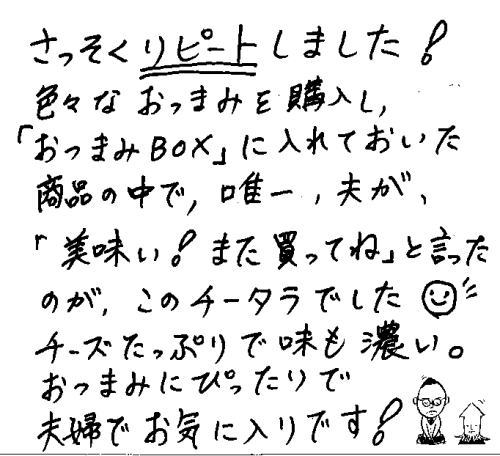 さっそくリピートしました!
色々なおつまみを購入し、
「おつまみBOX」に入れておいた
商品の中で、唯一、夫が、
「美味い!また買ってね」と言った
のが、このチータラでした
チーズたっぷりで味も濃い。
おつまみにぴったりで
夫婦でお気に入りです!